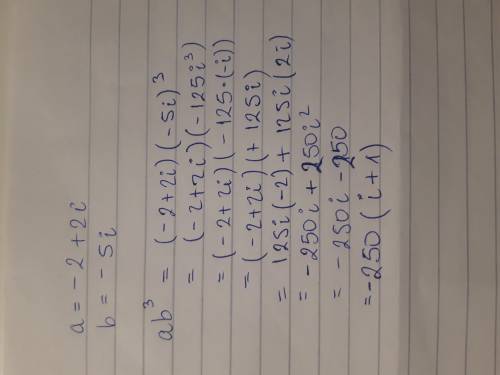 a = -2+2i
b = -5i
ab³ = (-2+2i)(-5i)³
= (-2+2i)(-125i³)
= (-2+2i)(-125·(-i))
= (-2+2i)(+125i)
= 125i(-2) + 125i(2i)
= -250i + 250i²
= -250i - 250
= -250(i+1)